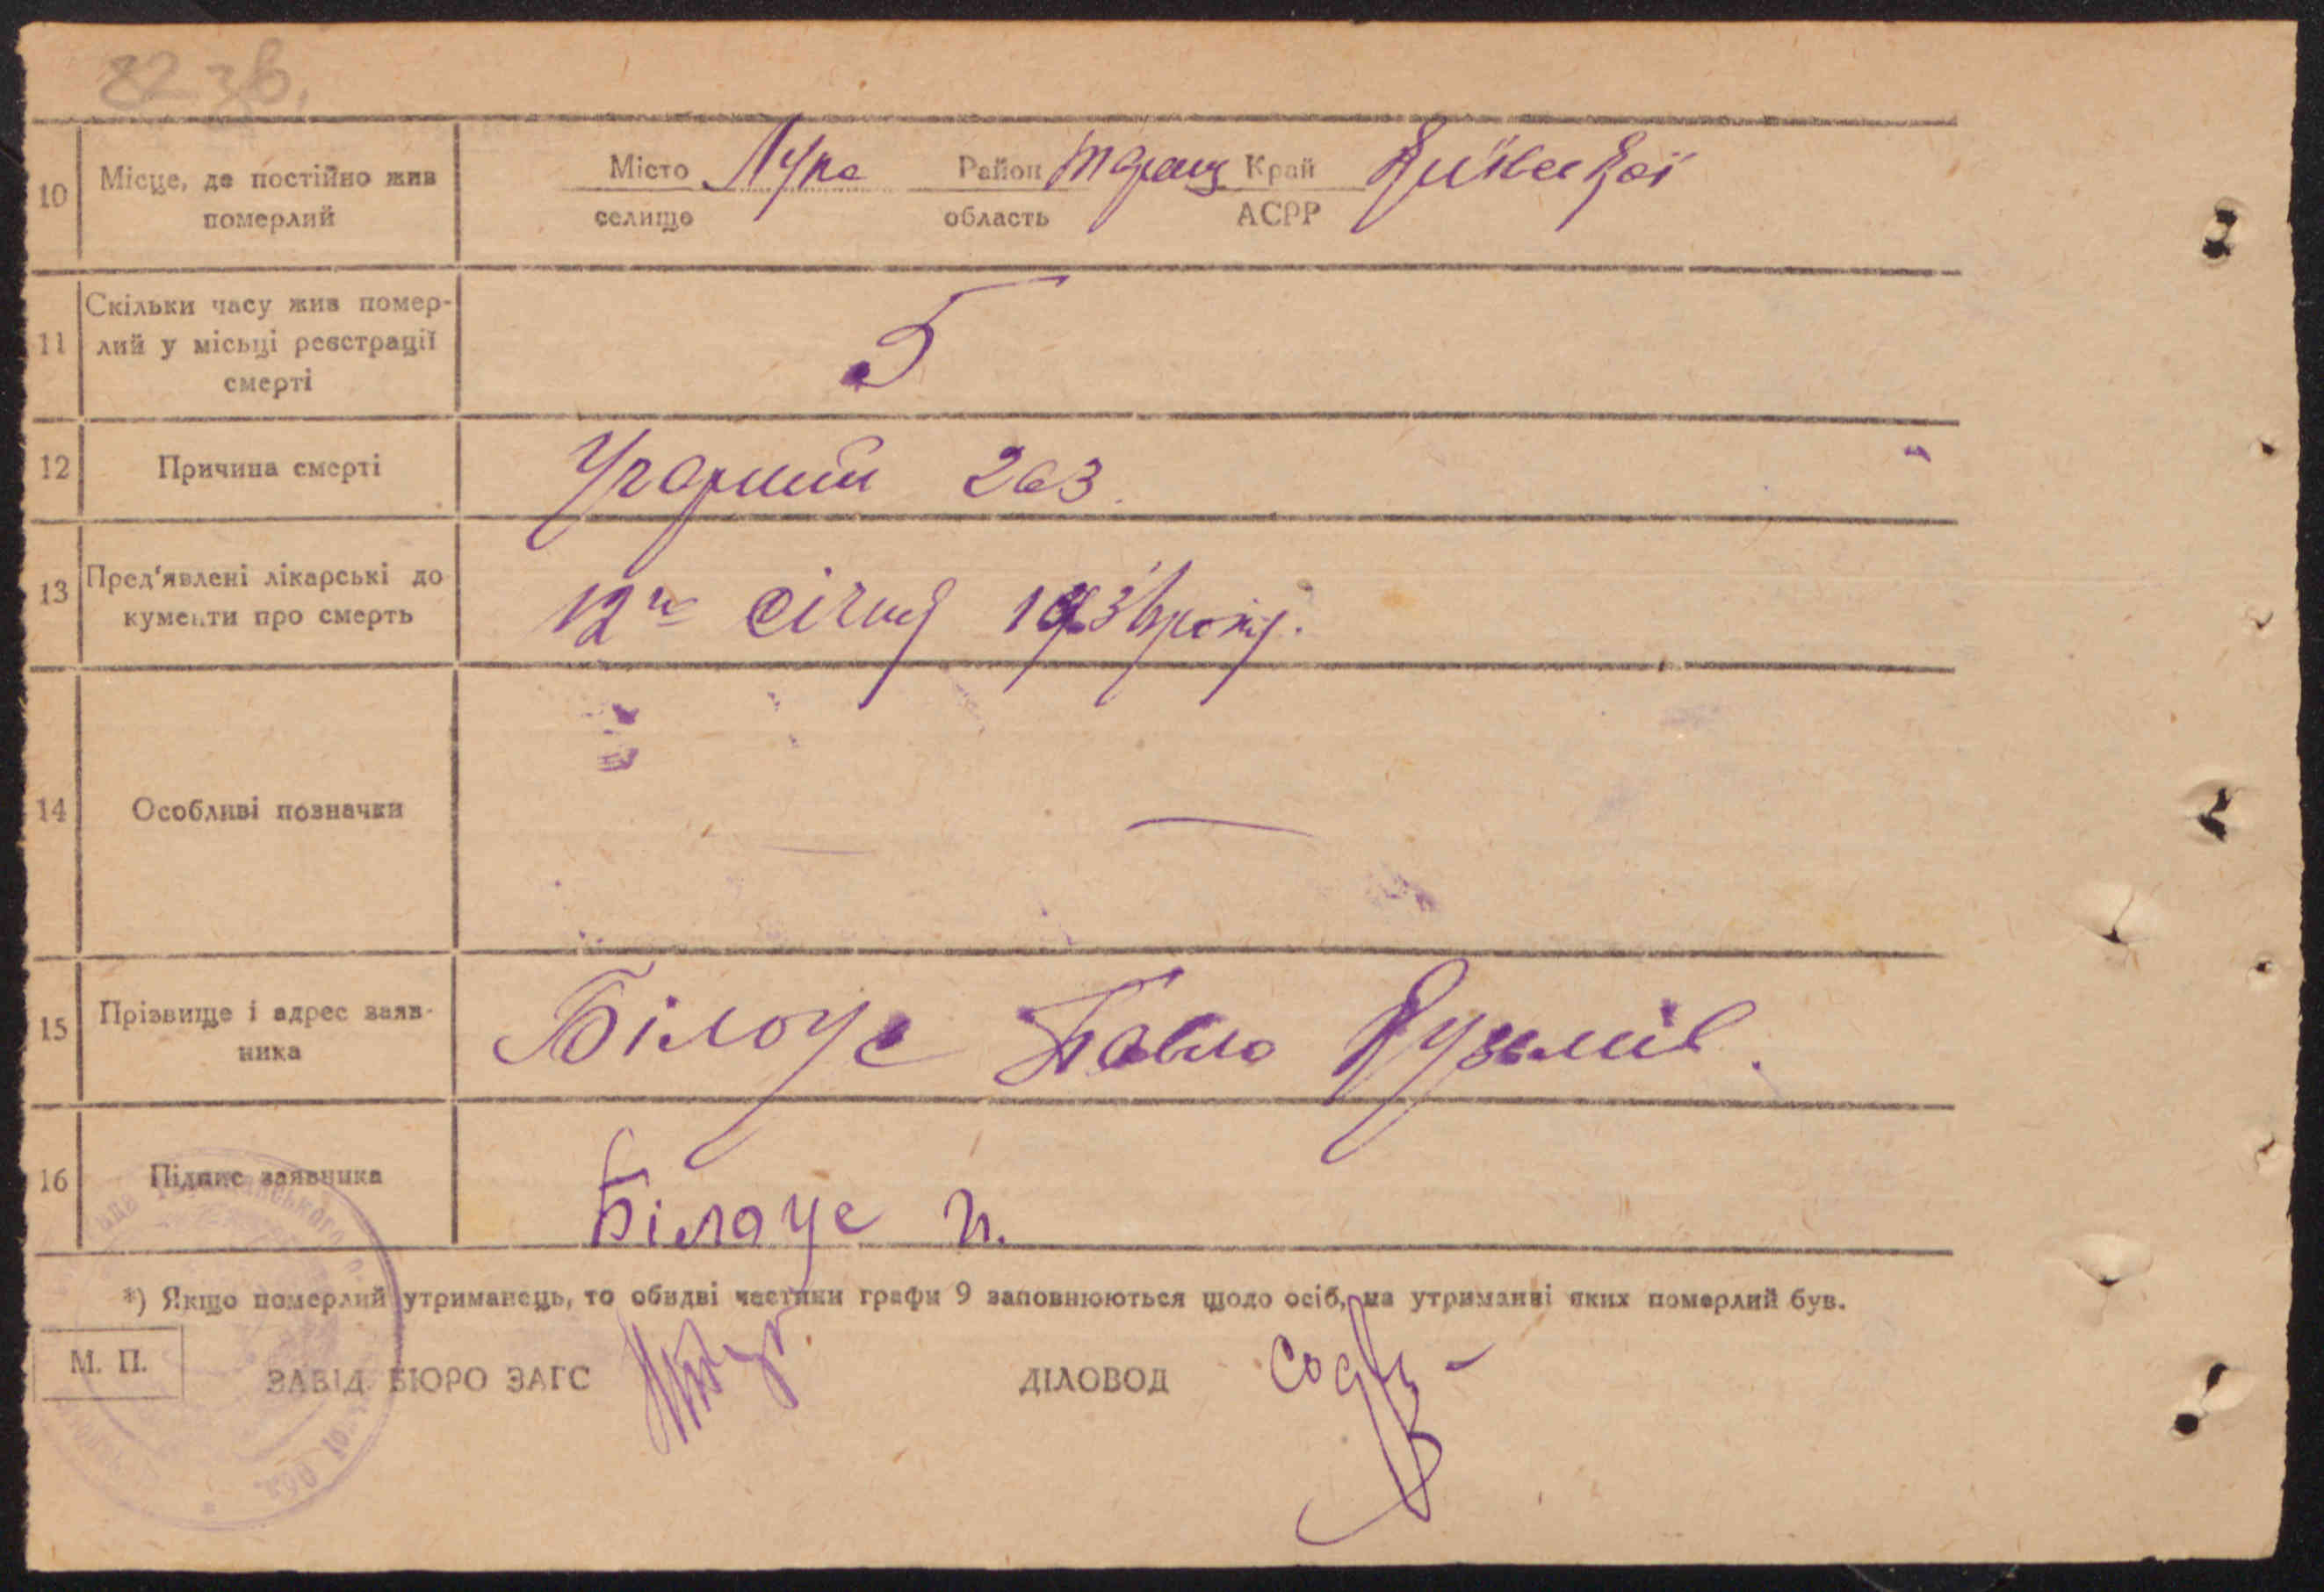 82 зв.
10 Місце, де постійно жив померлий
Місто Лука Район Таращ Край Київської
селище область АСРР
11 Скільки часу жив помер-
лий у місьці реєстрації
смерті
5
12 Причина смерті Угарний газ
13 Пред'явлені лікарські до
кументи про смерть
12го січня 193 року.
14 Особливі позначки —
15 Прізвище і адрес заяв-
ника
Білоус Павло Кузьмів.
16 Підпис заявника Білоус П.
*) Якщо померлий утриманець, то обидві частини графи 9 заповнюються щодо осіб, на утриманні яких померлий був.
М. П.
ЗАВІД. БЮРО ЗАГС ДІЛОВОД